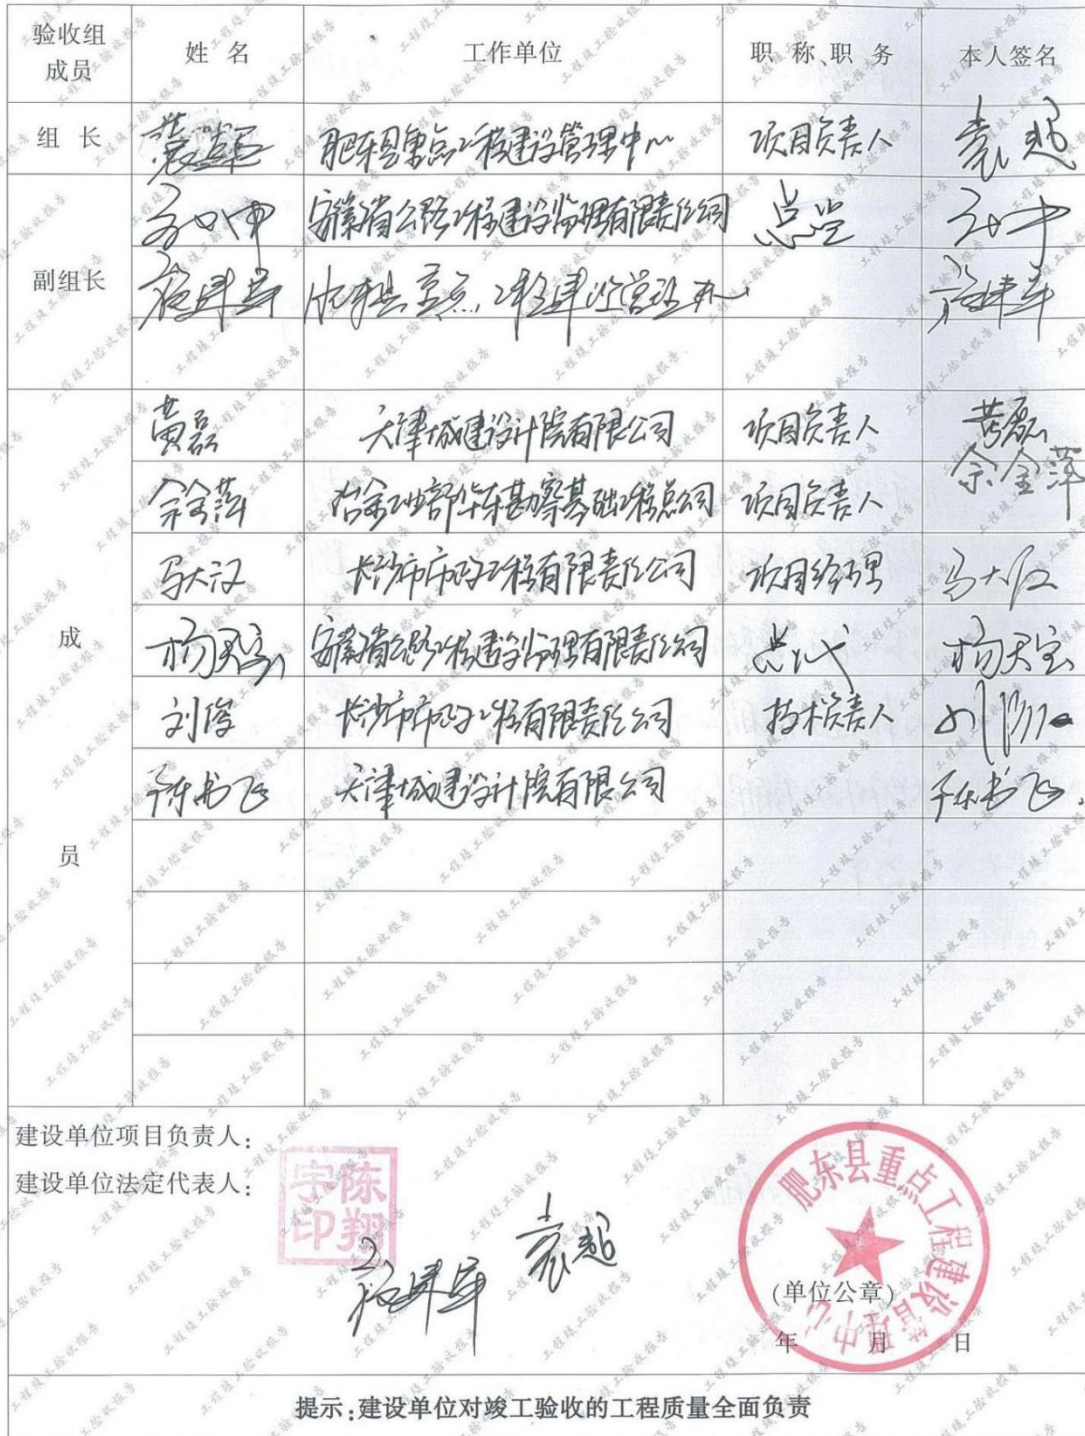 验收组成员 姓 名 工作单位 职 称、职 务 本人签名
组 长 肥东县重点工程建设管理中心 项目负责人 袁超
副组长 安徽省公路工程建设监理有限责任公司 总监
黄磊 天津城建设计院有限公司 项目负责人 黄磊
余金萍 冶金工业部华东勘察基础工程总公司 项目负责人 余金萍
马大汉 长沙市市政工程有限责任公司 项目经理 马大汉
成 杨天宝 安徽省公路工程建设监理有限责任公司 总代 杨天宝
刘俊 长沙市市政工程有限责任公司 技术负责人 刘俊
陈书飞 天津城建设计院有限公司 陈书飞
员
建设单位项目负责人:
建设单位法定代表人:
陈翔宇印
袁超
肥东县重点工程建设管理中心
(单位公章)
年 月 日
提示:建设单位对竣工验收的工程质量全面负责
工程竣工验收报告